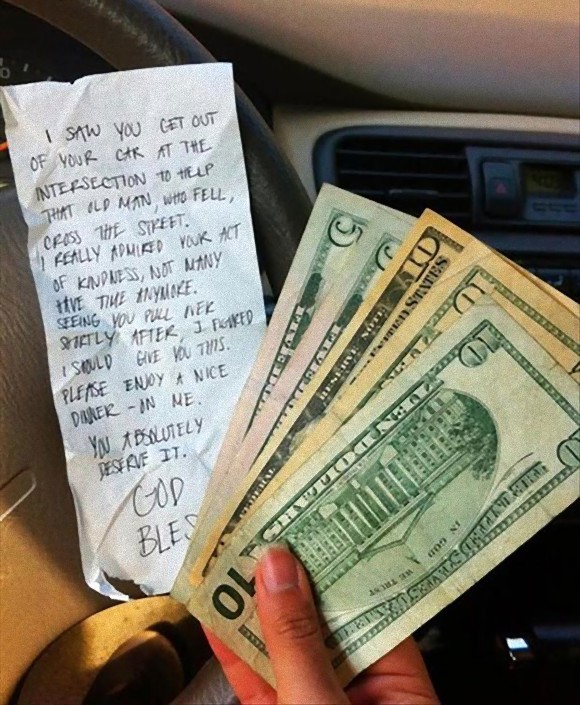 I SAW YOU GET OUT
OF YOUR CAR AT THE
INTERSECTION TO HELP
THAT OLD MAN, WHO FELL,
CROSS THE STREET.
I REALLY ADMIRED YOUR ACT
OF KINDNESS, NOT MANY
HAVE TIME ANYMORE.
SEEING YOU PULL OVER
SHORTLY AFTER, I FIGURED
I SHOULD GIVE YOU THIS.
PLEASE ENJOY A NICE
DINNER - ON ME.
YOU ABSOLUTELY
DESERVE IT.
GOD
BLES
5
10
10
10
IN GOD WE TRUST
THE UNITED STATES OF AMERICA
10